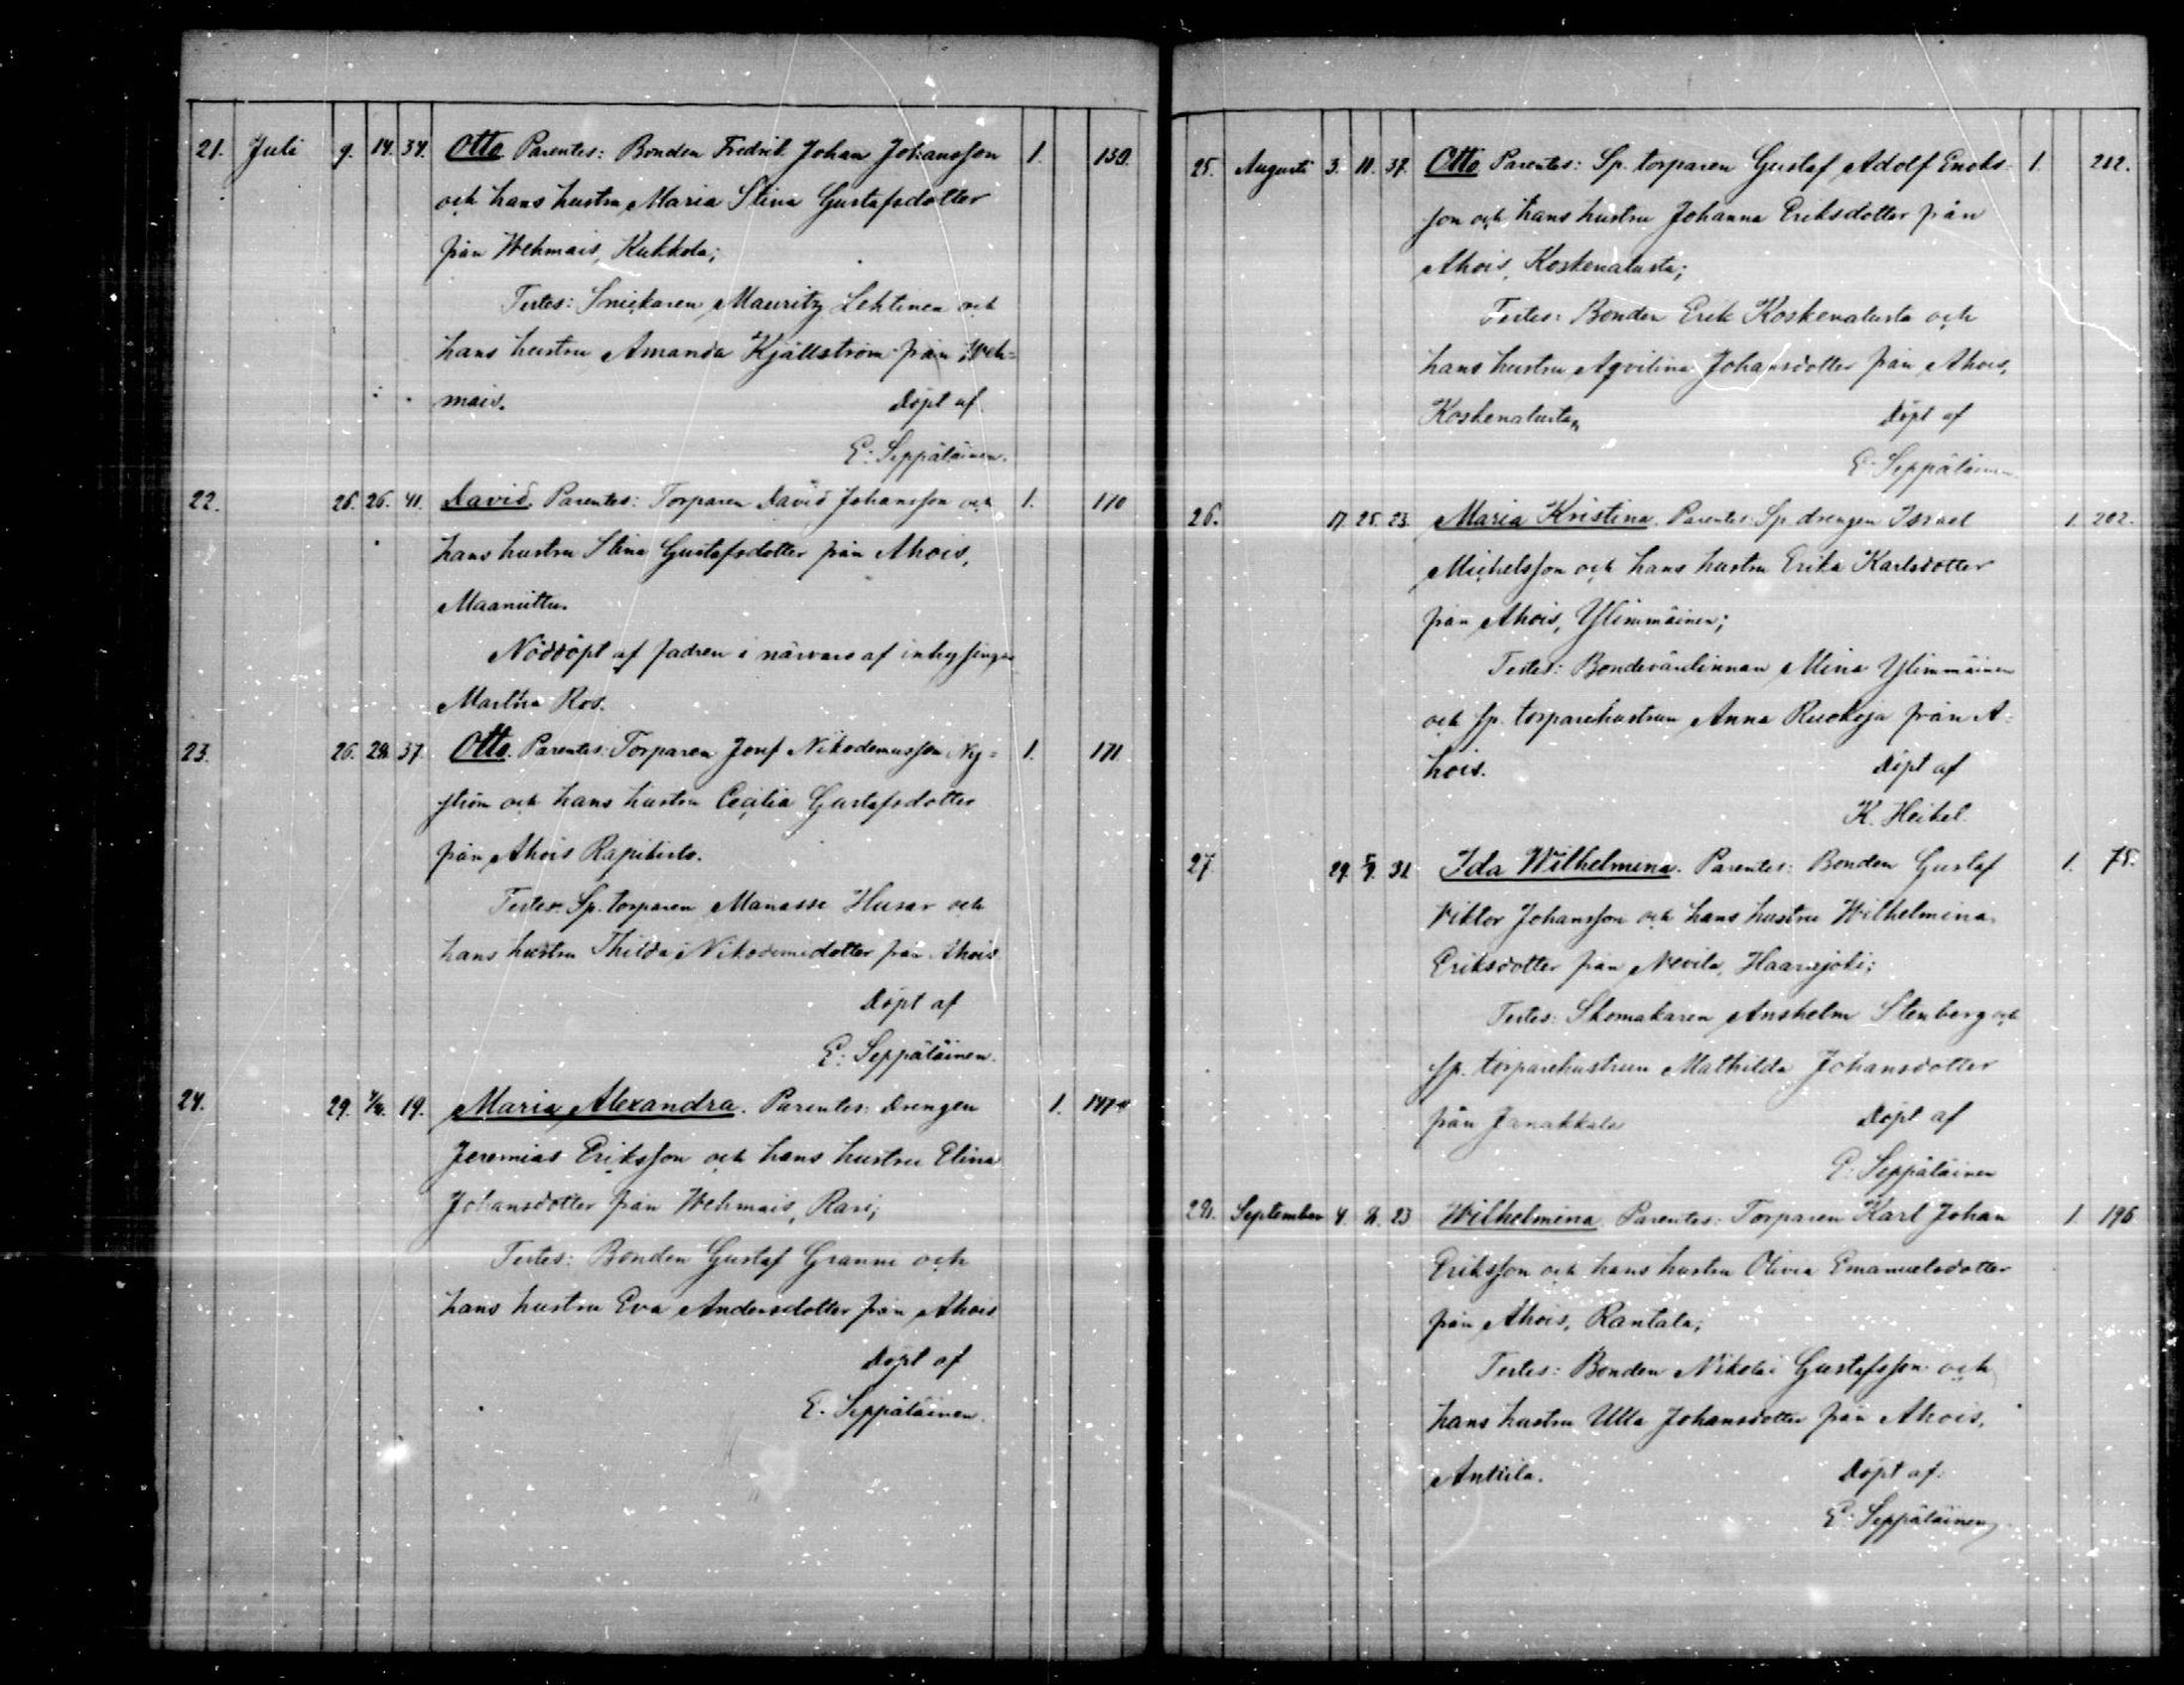 21. Juli 9. 14. 34. Otto Parentes: Bonden Fredrik Johan Johansson 1. 150.
och hans hustru Maria Stina Gustafsdotter
från Wehmais, Kukkola;
Testes: Snickaren Mauritz Lehtinen och
hans hustru Amanda Kjällström från Weh=
mais. Döpt af
E. Seppäläinen.
22. 25. 26. 41. David. Parentes: Torparen David Johansson och 1. 110
hans hustru Stina Gustafsdotter från Ahois,
Maanittu.
Nöddöpt af fadren i närvaro af inhysingen
Martha Ros.
23. 26. 28. 37. Otto. Parentes: Torparen Josef Nikodemusson Ny= 1. 171
ström och hans hustru Cecilia Gustafsdotter
från Ahois Rapibisto.
Testes: Sp. torparen Manasse Husar och
hans hustru Thilda Nikodemidotter från Ahois
Döpt af
E. Seppäläinen.
24. 29. 19. Maria Alexandra. Parentes: Drengen 1.
Jeremias Eriksson och hans hustru Elina
Johansdotter från Wehmais, Rasi;
Testes: Bonden Gustaf Granni och
hans hustru Eva Andersdotter från Ahois
Döpt af
E. Seppäläinen.
25. Augusti 3. 11. 37. Otto Parentes: Sp. torparen Gustaf Adolf Enoks- 1. 202.
son och hans hustru Johanna Eriksdotter från
Ahois, Koskenalusta;
Testes: Bonden Erik Koskenalusta och
hans hustru Aqvilina Johansdotter från Ahois,
Koskenalusta, Döpt af
E. Seppäläinen
26. 17. 25. 23. Maria Kristina. Parentes: Sp. drengen Israel 1. 202.
Michelsson och hans hustru Erika Karlsdotter
från Ahois, Ylimmäinen;
Testes: Bondevärdinnan Mina Ylimmäinen
och sp. torparehustrun Anna Ruokoja från A=
hois. Döpt af
K. Heikel.
27. 29. 5/9. 32 Ida Wilhelmina. Parentes: Bonden Gustaf 1. 75.
Viktor Johansson och hans hustru Wilhelmina
Eriksdotter från Nevila, Haarajoki;
Testes: Skomakaren Anshelm Stenberg och
sp. torparehustrun Mathilda Johansdotter
från Janakkala Döpt af
E. Seppäläinen
28. September 4. 8. 23 Wilhelmina. Parentes: Torparen Karl Johan 1. 196
Eriksson och hans hustru Olivia Emanuelsdotter
från Ahois, Rantala;
Testes: Bonden Nikolai Gustafsson och
hans hustru Ulla Johansdotter från Ahois,
Anttila. Döpt af
E. Seppäläinen